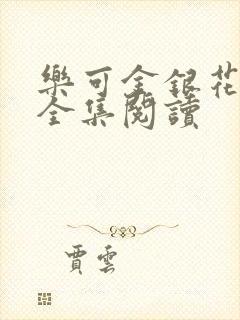 樂可金銀花
全集閱讀
賈雲